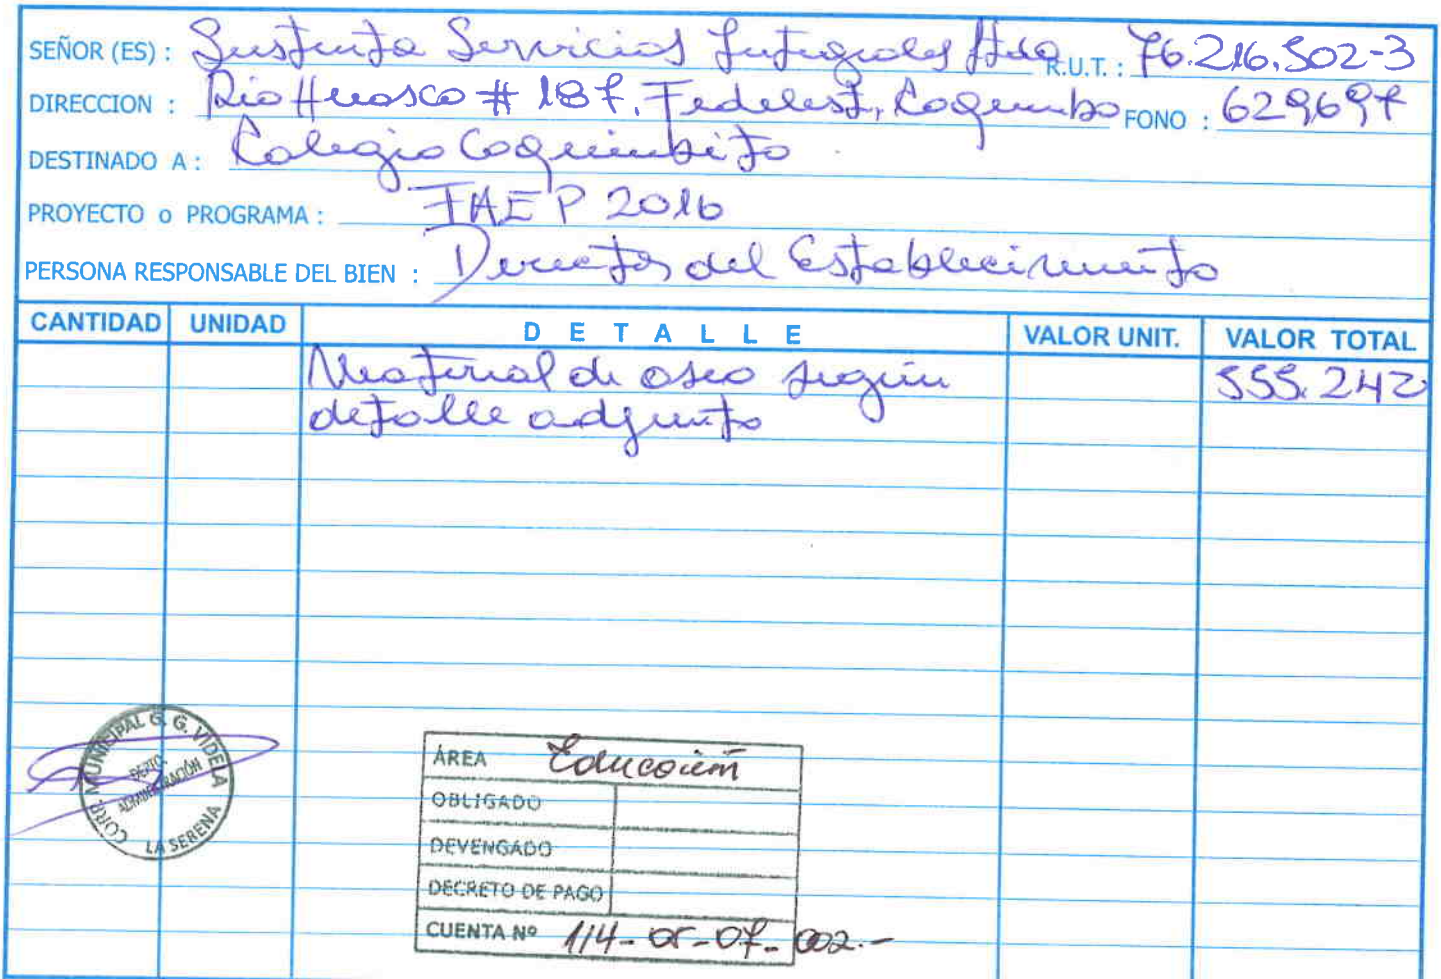 SEÑOR (ES) : Sustenta Servicios Integrales Ltda R.U.T. : 76.216.502-3
DIRECCION : Rio Huasco # 187, Tierras Blancas, Coquimbo FONO : 629697
DESTINADO A : Colegio Coquimbito
PROYECTO o PROGRAMA : FAEP 2016
PERSONA RESPONSABLE DEL BIEN : Director del Establecimiento
CANTIDAD UNIDAD DETALLE VALOR UNIT. VALOR TOTAL
Material de aseo según 555.242
detalle adjunto
CORP. MUNICIPAL G. G. VIDELA
DEPTO.
ADMINISTRACIÓN
LA SERENA
ÁREA Educación
OBLIGADO
DEVENGADO
DECRETO DE PAGO
CUENTA Nº 114-05-07-002.-